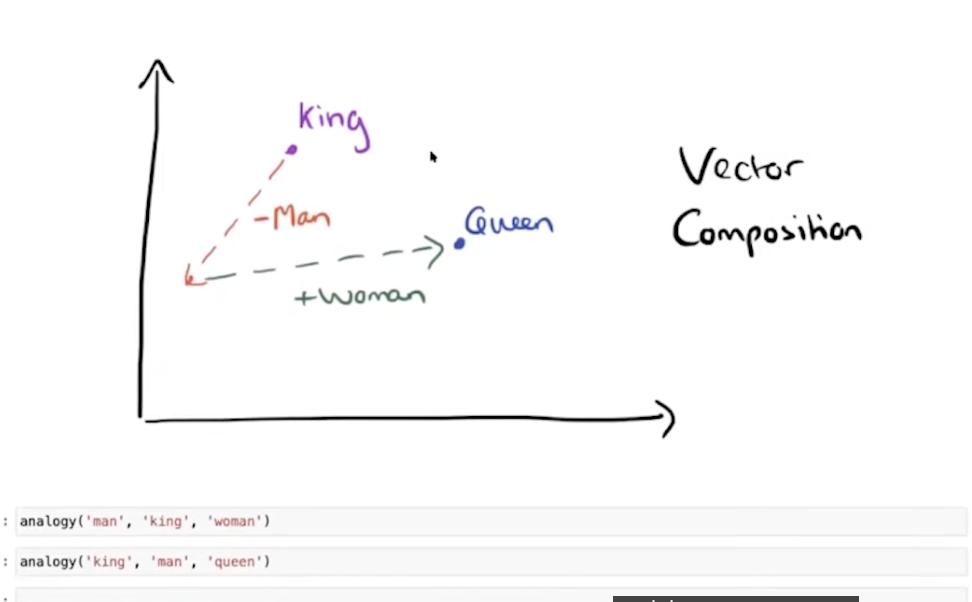 King
-Man
Queen
+Woman
Vector
Composition
: analogy('man', 'king', 'woman')
: analogy('king', 'man', 'queen')